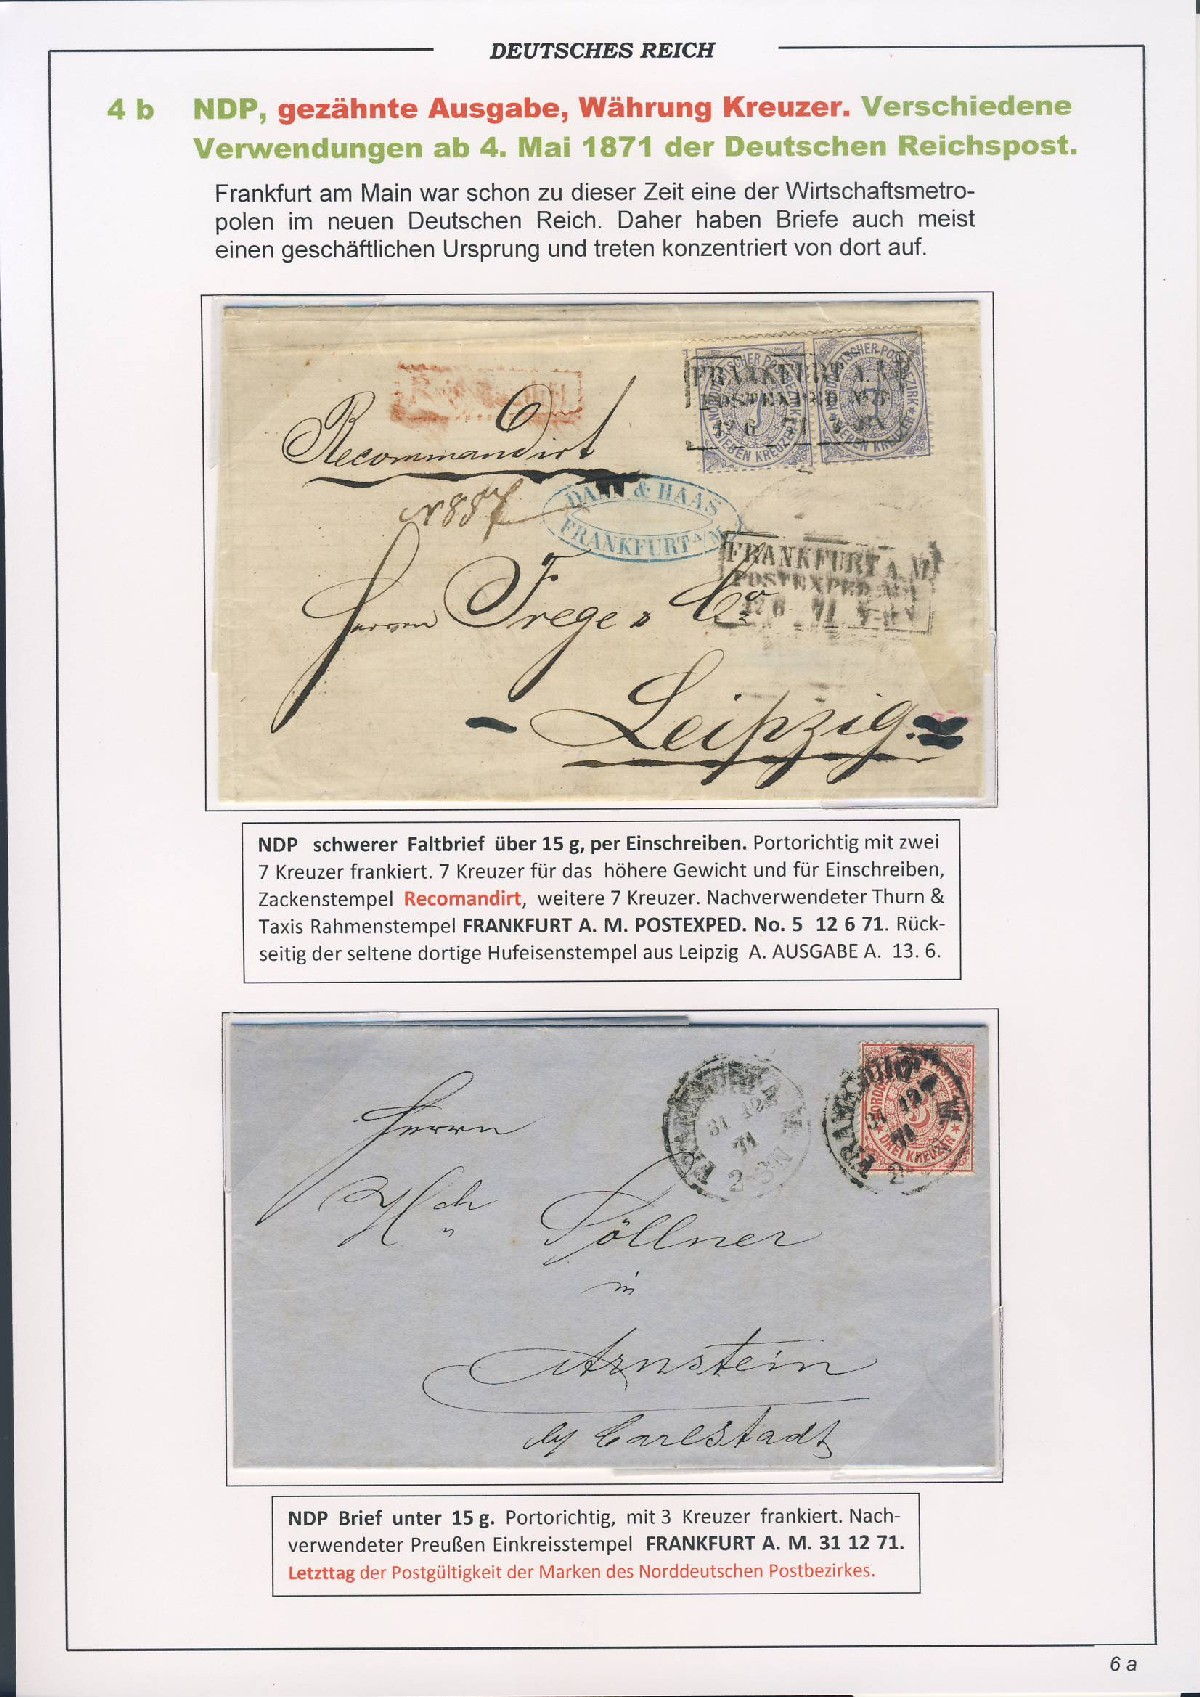 DEUTSCHES REICH
4 b NDP, gezähnte Ausgabe, Währung Kreuzer. Verschiedene
Verwendungen ab 4. Mai 1871 der Deutschen Reichspost.
Frankfurt am Main war schon zu dieser Zeit eine der Wirtschaftsmetro-
polen im neuen Deutschen Reich. Daher haben Briefe auch meist
einen geschäftlichen Ursprung und treten konzentriert von dort auf.
FRANKFURT A. M.
POSTEXPED. No. 5
12 6 71
SIEBEN KREUZER
Recommandirt
N 887
DANN & HAAS
FRANKFURT A/M
FRANKFURT A. M.
POSTEXPED.
12 6 71
Herren Frege & Co
Leipzig.
NDP schwerer Faltbrief über 15 g, per Einschreiben. Portorichtig mit zwei
7 Kreuzer frankiert. 7 Kreuzer für das höhere Gewicht und für Einschreiben,
Zackenstempel Recomandirt, weitere 7 Kreuzer. Nachverwendeter Thurn &
Taxis Rahmenstempel FRANKFURT A. M. POSTEXPED. No. 5 12 6 71. Rück-
seitig der seltene dortige Hufeisenstempel aus Leipzig A. AUSGABE A. 13. 6.
FRANKFURT A. M.
31 12
71
2-3 N
FRANKFURT A. M.
31 12
71
2
3
DREI KREUZER
Herrn
Söllner
in
Arnstein
by Carlstadt
NDP Brief unter 15 g. Portorichtig, mit 3 Kreuzer frankiert. Nach-
verwendeter Preußen Einkreisstempel FRANKFURT A. M. 31 12 71.
Letzttag der Postgültigkeit der Marken des Norddeutschen Postbezirkes.
6 a